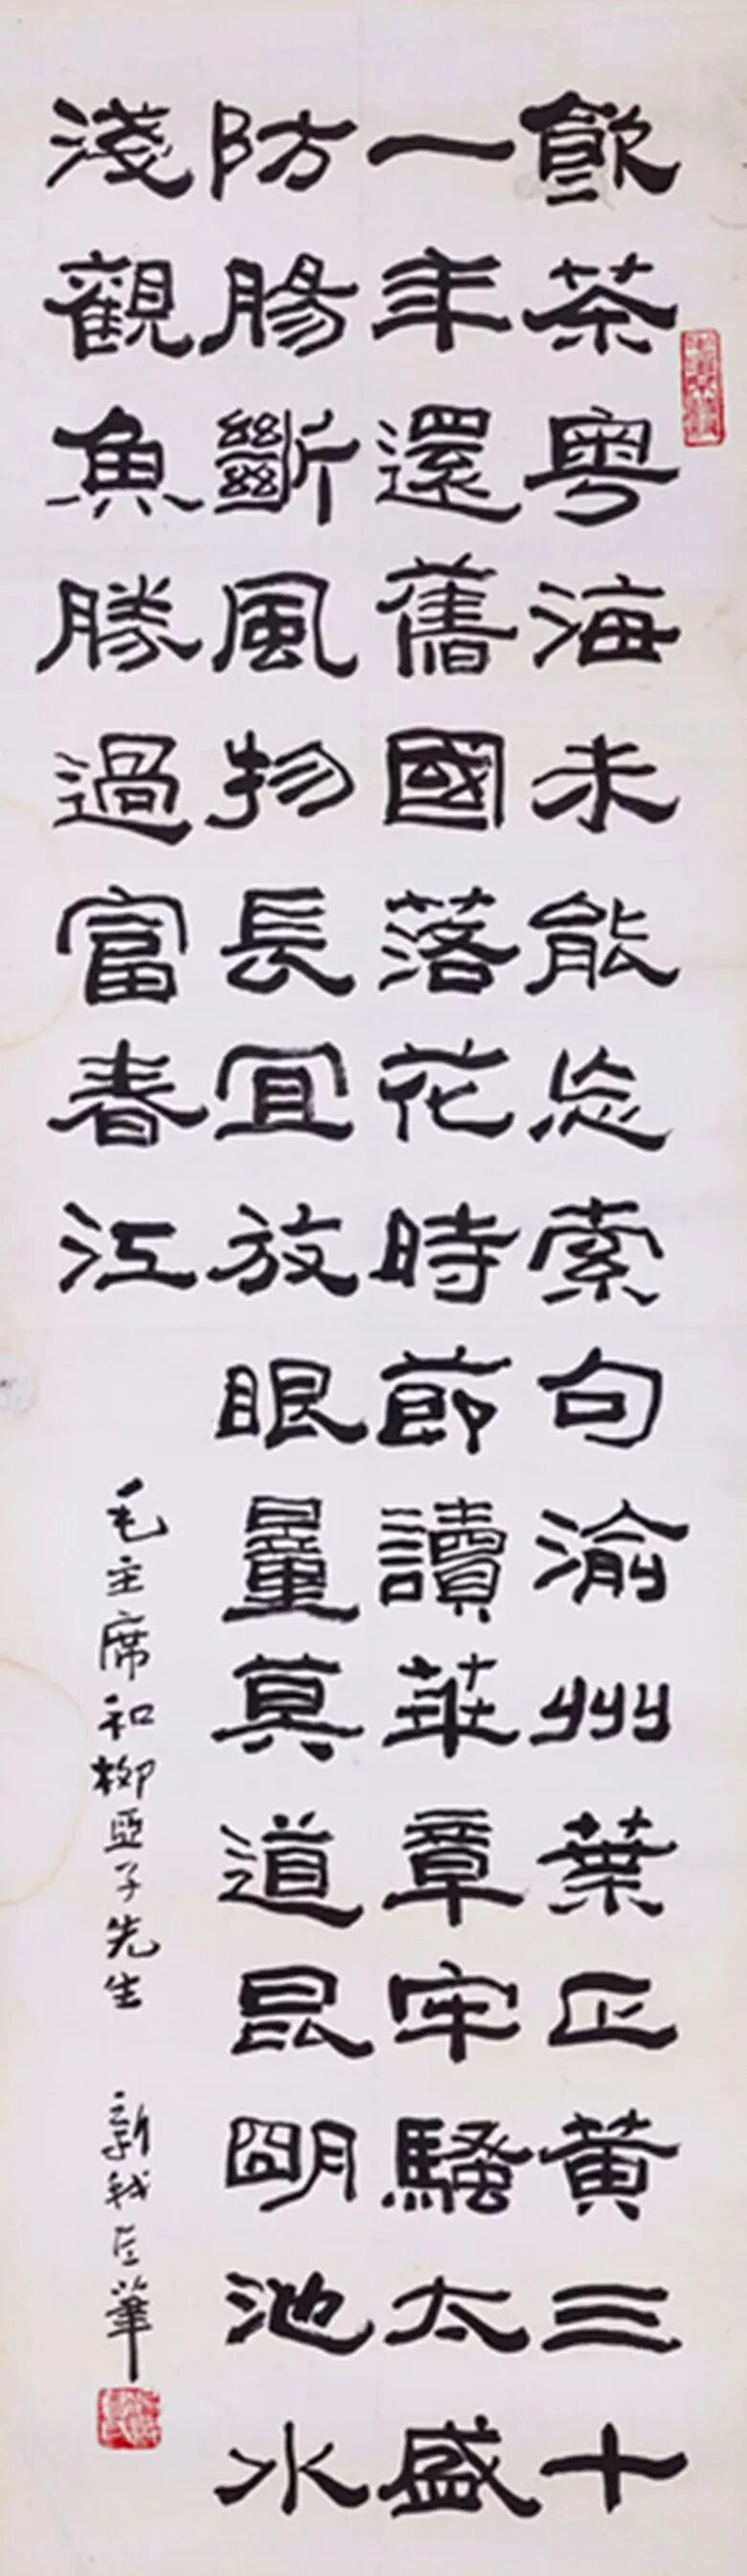 飲茶粵海未能忘索句渝州葉正黃三十
一年還舊國落花時節讀華章牢騷太盛
防腸斷風物長宜放眼量莫道昆明池水
淺觀魚勝過富春江
毛主席和柳亞子先生 新我左筆